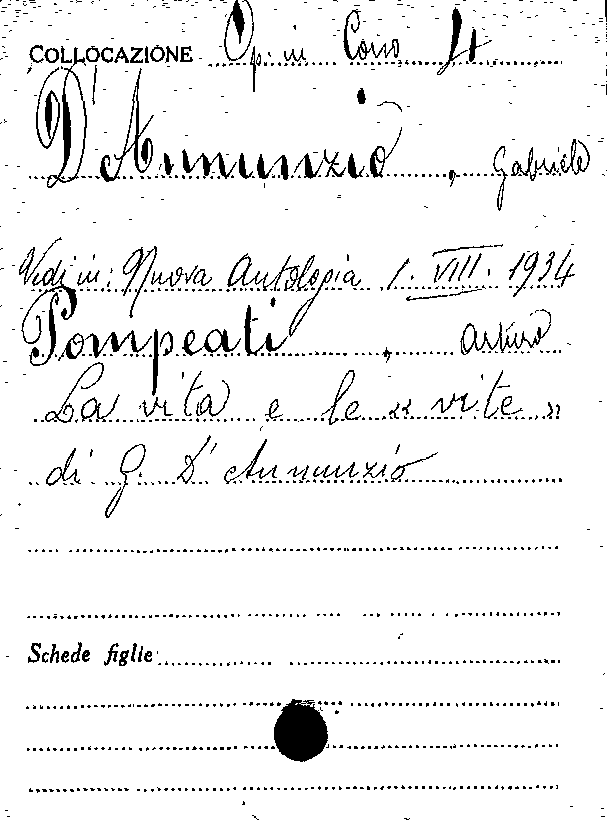 COLLOCAZIONE Op. in Corso 4
D'Annunzio, Gabriele
Vedi in: Nuova Antologia 1. VIII. 1934
Pompeati, Arturo
La vita e le « vite »
di G. D'Annunzio
Schede figlie